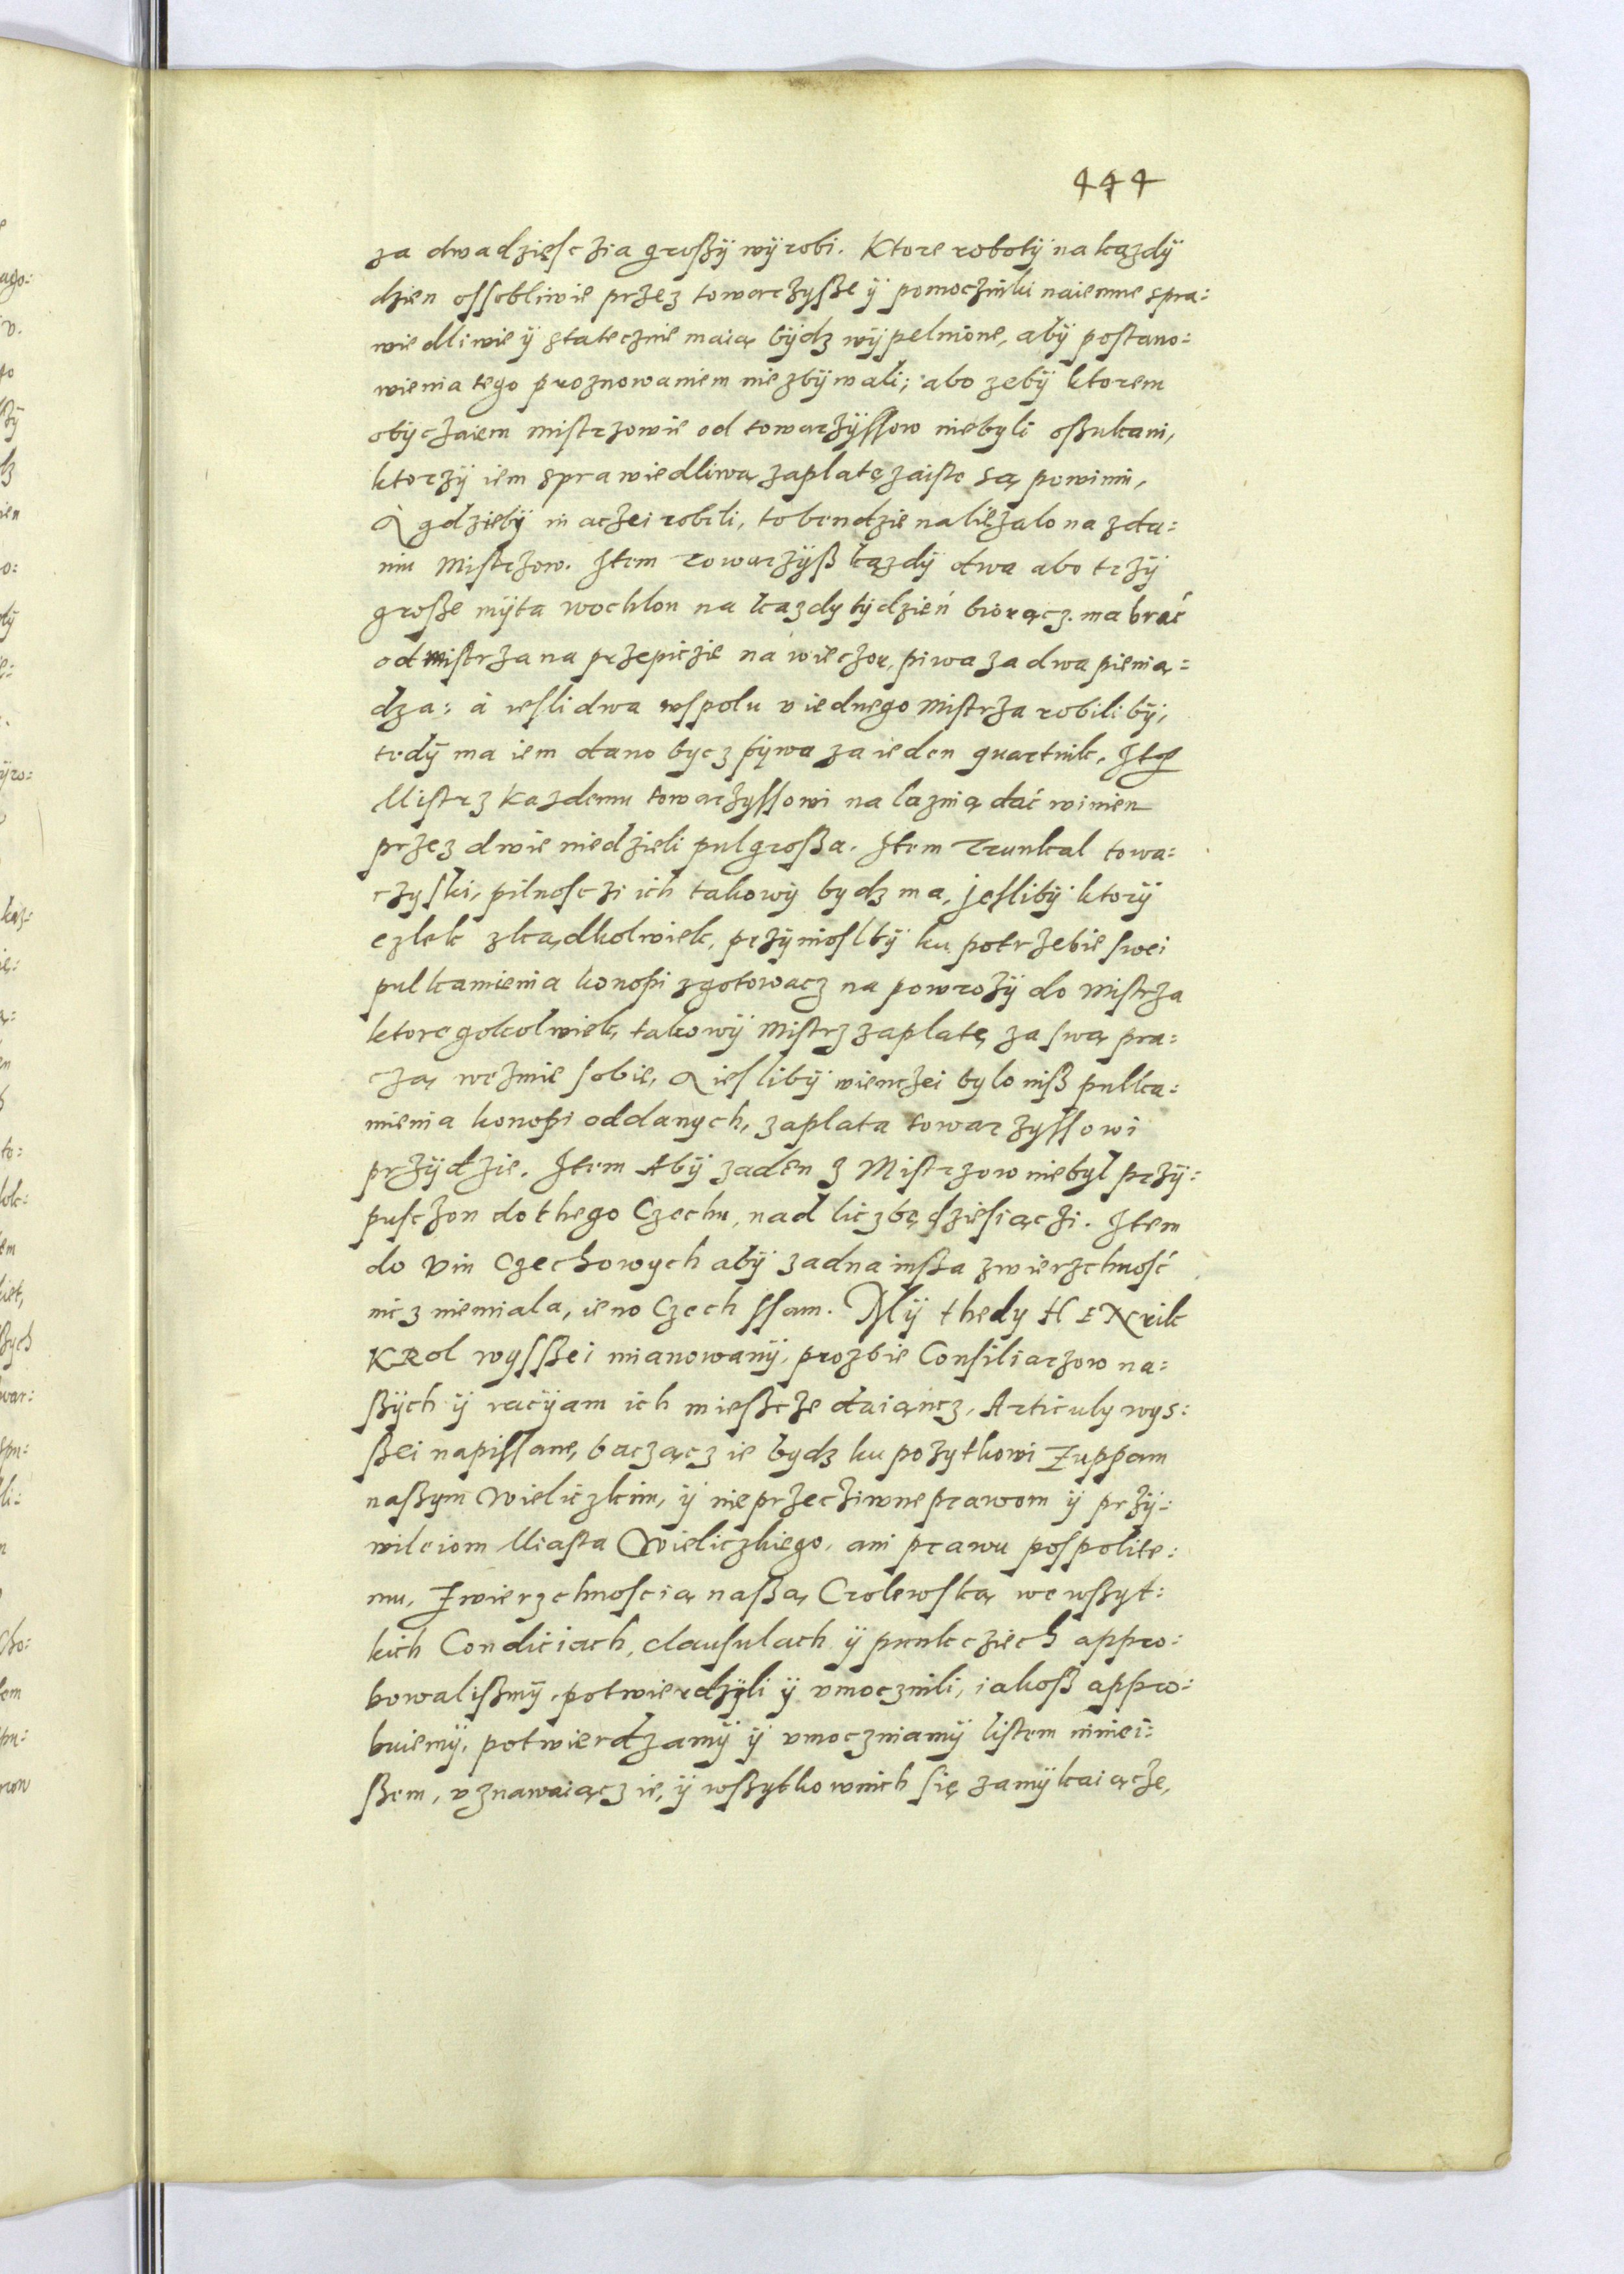 444
za dwadzięsczia großÿ wÿrobi. Ktore robotÿ na kązdÿ
dzien ossobliwie przez towarzysze ÿ pomoczniki naiemne spra:
wiedliwie ÿ statecznie maią bÿdz wÿpelnione, abÿ postano:
wienia tego proznowaniem nie zbÿwali; abo zebÿ ktorem
obÿczaiem mistrzowie od towarzÿssow niebyli oßukani,
ktorzÿ iem sprawiedliwą zaplatę zaiste są powinni,
A gdziebÿ inaczei robili, to bendzie nalężalo na zda:
niu Mistrzow. Item Towarzÿß kązdÿ dwa abo trzÿ
große mÿta wochlon na kazdy tÿdzień biorącz. ma brać
od mistrza na przepiczie na wieczor, piwa za dwa pienią:
dza: à iesli dwa wspolu v iednego Mistrza robilibÿ,
tedÿ ma iem dano bycz pÿwa za ieden quartnik, Item
Mistrz kazdemu towarzyssowi na laznią dać winien
przez dwie niedzieli pulgroßa. Item Trunkal towa:
rzyski, pilnosczi ich takowÿ bydz ma, jeslibÿ ktorÿ
czlek zkądkolwiek, przÿnioslbÿ ku potrzebie swei
pulkamienia konopi zgotowacz na powrozÿ do Mistrza
ktoregokolwiek, takowÿ Mistrz zaplatę za swą pra:
czą weźmie sobie, A ieslibÿ wienczei bylo niß pulka:
mienia konopi oddanych, zaplata towarzyssowi
przÿdzie. Item Abÿ zaden z Mistrzow niebyl przÿ:
pusczon do thego Czechu, nad liczbę dziesiączi. Item
do Vin Czechowych abÿ zadna inßa zwierzchność
nicz niemiala, ieno Czech ssam. Mÿ thedy HENrik
KRol wyssßei mianowanÿ, prozbie Consiliarzow na:
ßÿch ÿ racÿam ich mießcze daiąncz, Articuly wys:
ßei napissane, baczącz ie bydz ku pozytkowi Zuppam
naßym Wieliczkim, ÿ nieprzecziwne prawom ÿ przÿ:
wileiom Miasta Wieliczkiego, ani prawu pospolite:
mu, Zwierzchnoscią naßą Crolewską we wßyt:
kich Condiciach, clausulach ÿ punkcziech appro:
bowalißmÿ, potwierdzÿli ÿ vmocznili, iakoß appro:
buiemÿ, potwierdzamÿ ÿ vmoczniamÿ listem niniei:
ßem, vznawaiącz ie, ÿ wßytko wnich się zamÿkaiącze,